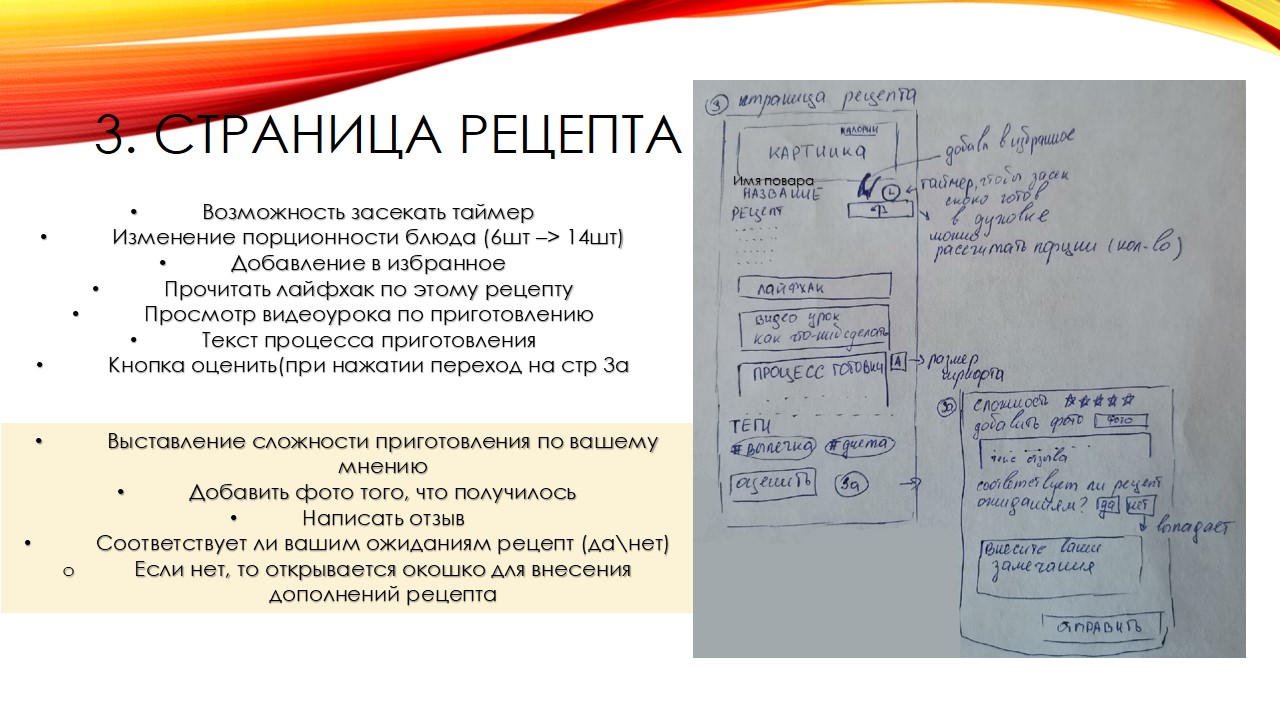 3. СТРАНИЦА РЕЦЕПТА
• Возможность засекать таймер
• Изменение порционности блюда (6шт –> 14шт)
• Добавление в избранное
• Прочитать лайфхак по этому рецепту
• Просмотр видеоурока по приготовлению
• Текст процесса приготовления
• Кнопка оценить(при нажатии переход на стр 3а
• Выставление сложности приготовления по вашему
мнению
• Добавить фото того, что получилось
• Написать отзыв
• Соответствует ли вашим ожиданиям рецепт (да\нет)
o Если нет, то открывается окошко для внесения
дополнений рецепта
3 страница рецепта
калории
КАРТИНКА
добавл в избранное
Имя повара
НАЗВАНИЕ
таймер, чтобы засек
скоко готов
в духовке
РЕЦЕПТ
можно
рассчитать порции (кол-во)
ЛАЙФХАК
ВИДЕО УРОК
как что-нибсделать
ПРОЦЕСС ГОТОВКИ
А → размер
шрифта
ТЕГИ
#выпечка #диета
оценить 3а →
3а
сложность ☆☆☆☆☆
добавить фото ФОТО
текс отзыва
соответствует ли рецепт
ожиданиям? да нет
→ вопадает
Внесите ваши
замечания
ОТПРАВИТЬ